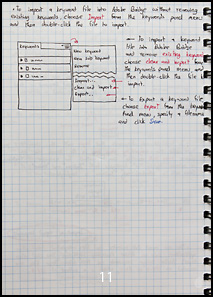 • To import a keyword file into Adobe Bridge without removing
existing keywords, choose Import from the keywords panel menu
and then double-click the file to import.
Keywords
New Keyword
New Sub Keyword
Rename
Import...
Clear and Import...
Export...
← To import a keyword
file into Adobe Bridge
and remove existing keywords
choose clear and Import from
the keywords panel menu, and
then double-click the file to
import.
← To Export a keyword file
choose Export from the keywords
panel menu, specify a filename
and click Save.
11